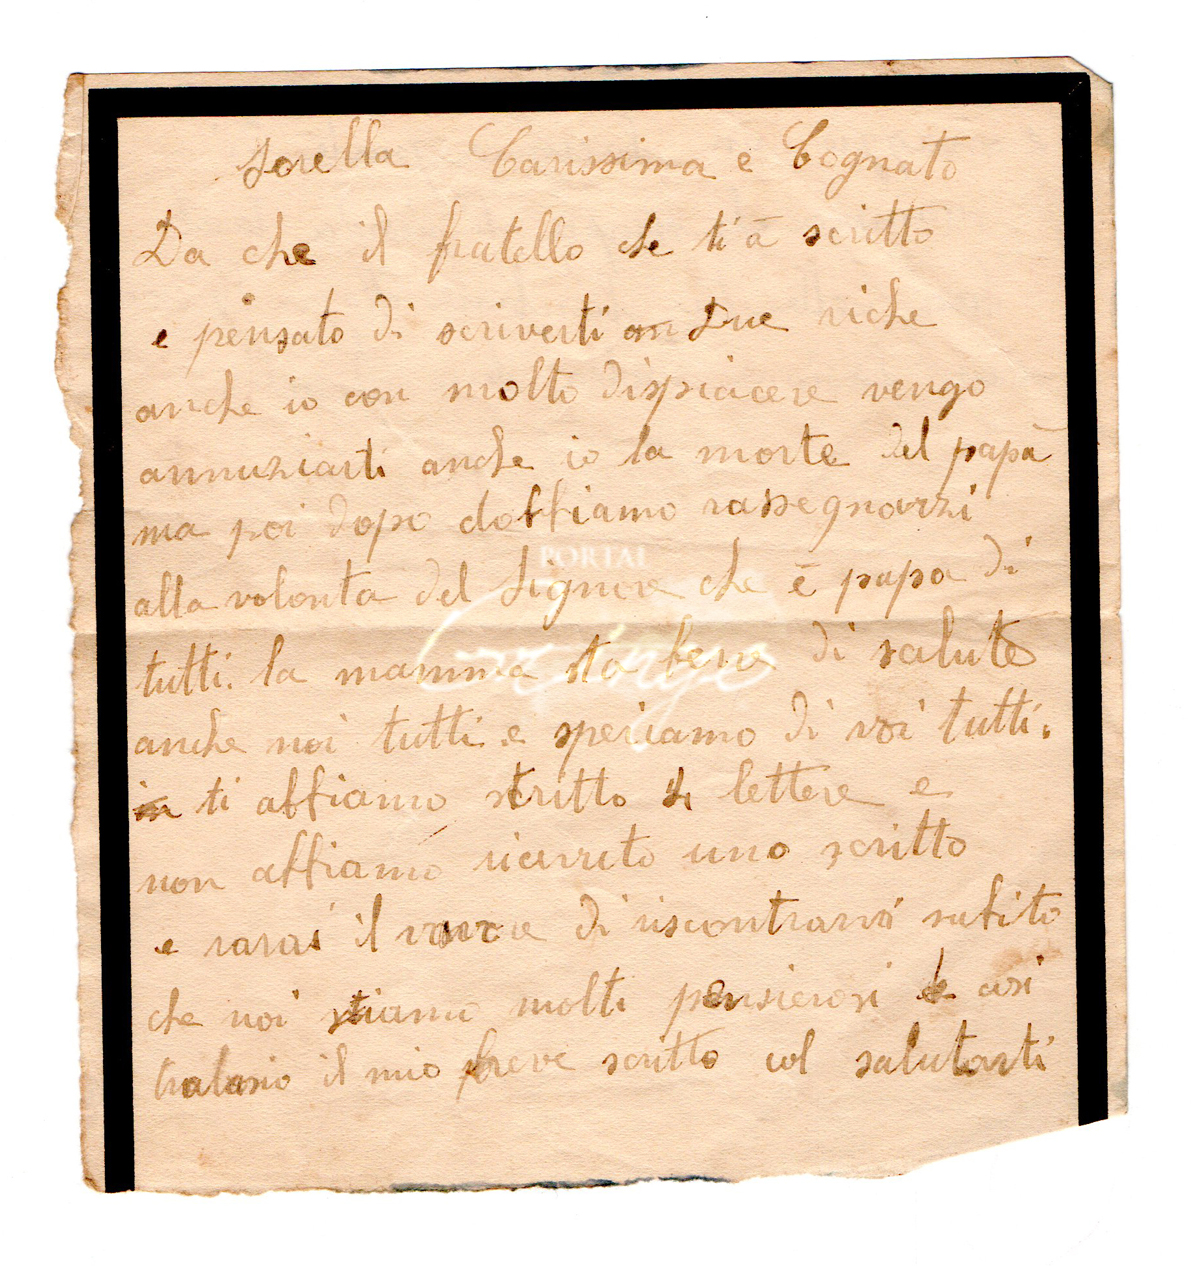 Sorella Carissima e Cognato
Da che il fratello che ti à scritto
e pensato di scriverti due riche
anche io con molto dispiacere vengo
annunziarti anche io la morte del papà
ma poi dopo dobbiamo rassegnarzi
alla volonta del Signore che è papa di
tutti. la mamma sta bene di salute
anche noi tutti e speriamo di voi tutti.
ti abbiamo scritto lettere e
non abbiamo ricevuto uno scritto
e sarai il di riscontrarvi subito
che noi stiamo molti pensierosi cosi
tralasio il mio breve scritto col salutarti
PORTAL